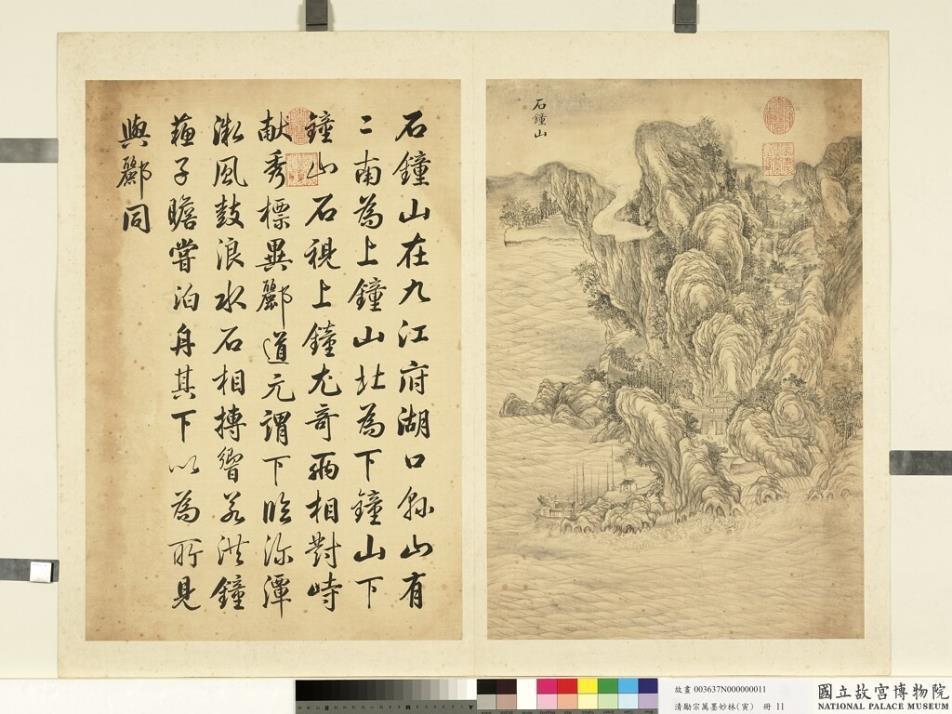 石鐘山
石鐘山在九江府湖口縣山有
二南為上鐘山北為下鐘山下
鐘山石視上鐘尤奇兩相對峙
献秀標異酈道元謂下臨深潭
微風鼓浪水石相搏響若洪鐘
蘇子瞻嘗泊舟其下以為所見
與酈同
故畫 003637N000000011
清勵宗萬墨妙珠林(寅) 冊 11
國立故宮博物院
NATIONAL PALACE MUSEUM